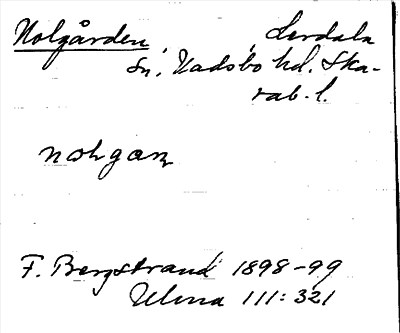 Nolgården, Lerdala
sn, Vadsbo hd. Ska-
rab. l.
nolgaɲ
F. Bergstrand 1898-99
Ulma 111: 321